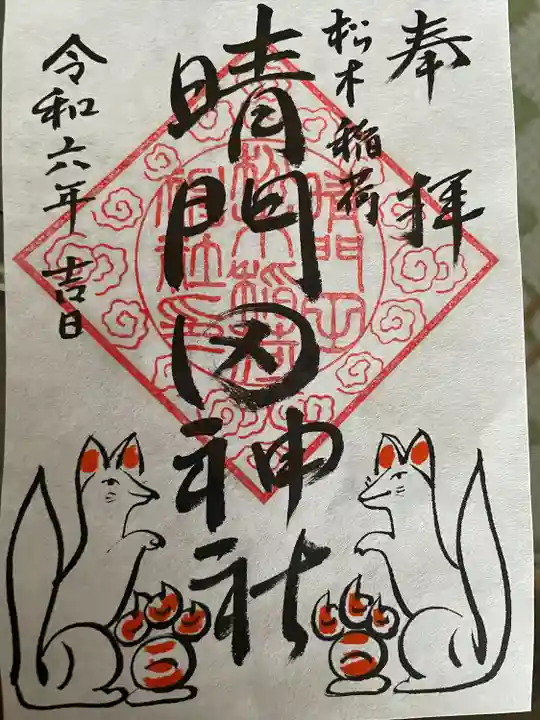 奉拝
松木稲荷
晴門田神社
令和六年 吉日